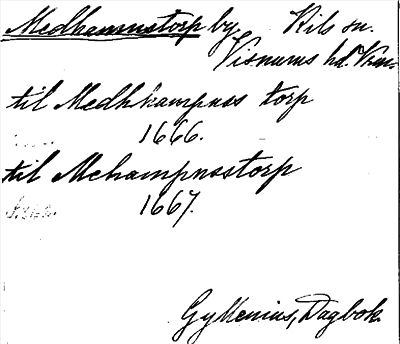 Medhamnstorp by Kils sn.
Visnums hd. Vrml.
til Medhkampnss torp
1666.
til Mehampnsstorp
1667.
Gyllenius, Dagbok.